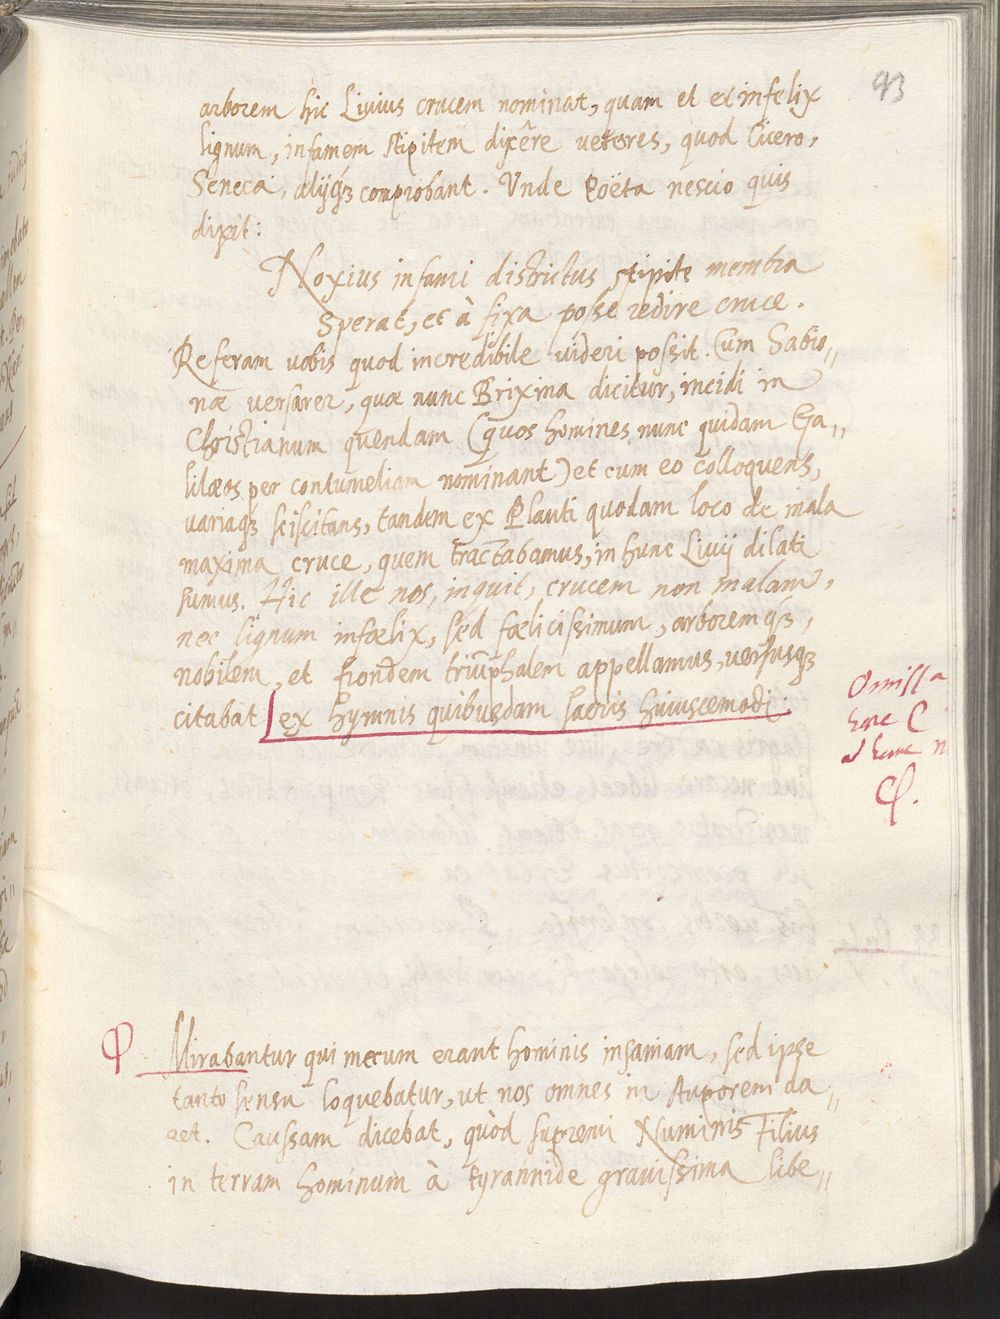 93
arborem hic Livius crucem nominat, quam et ex infelix
lignum, infamem stipitem dixêre veteres, quod Cicero,
Seneca, alijq́ꝫ comprobant. Unde Poëta nescio quis
dixit:
Noxius infami districtus stipite membra
Sperat, et à fixa posse redire cruce.
Referam vobis quod incredibile videri possit. Cum Sabio,,
næ versarer, quæ nunc Brixina dicitur, incidi in
Christianum quendam (quos homines nunc quidam Ga,,
lilæos per contumeliam nominant) et cum eo colloquens,
variaqꝫ sciscitans, tandem ex Plauti quodam loco de mala
maxima cruce, quem tractabamus, in hunc Livij dilati
sumus. Hic ille nos, inquit, crucem non malam,
nec lignum infœlix, sed fœlicissimum, arboremqꝫ,
nobilem, et frondem triũphalem appellamus, versusqꝫ
citabat [ex hymnis quibusdam sacris huiuscemodi:
Omissa
hec
ad hanc n
Mirabantur qui mecum erant hominis insaniam, sed ipse
tanto sensu loquebatur, ut nos omnes in stuporem da,,
ret. Caussam dicebat, quòd supremi Numinis Filius
in terram hominum à tyrannide gravissima libe,,